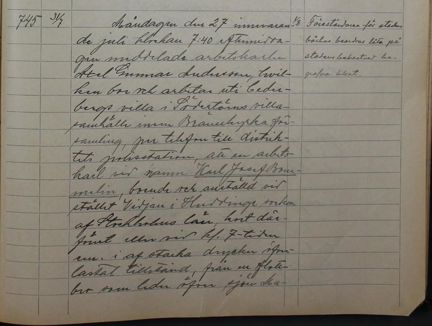 745 31/7 Måndagen den 27 innevaran-
de juli klockan 7.40 eftermidda-
gen meddelade arbetskarlen
Axel Gunnar Andersson, hvil-
ken bor och arbetar uti Ceder-
bergs villa i Södertörns villa-
samhälle inom Brännkyrka för-
samling, per telefon till distrik-
tets polisstation, att en arbets-
karl vid namn Karl Josef
boende och anställd vid
stället Vidjan i Huddinge socken
af Stockholms län, kort där-
förut eller vid kl. 7-tiden
em. i af starka drycker öfver-
lastat tillstånd, från en flott-
bro som leder öfver sjön
Föreståndaren för
låta på
stadens bekostnad be-
grafva liket.